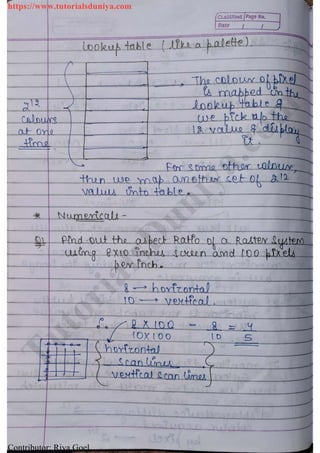 https://www.tutorialsduniya.com
Classmate Page No.
Date / /
Lookup table (like a palette)
The colour of pixel
is mapped in the
lookup table &
we pick up the
12 value & display
it
2^12
colours
at one
time
For some other colour,
then we map another set of 2^12
values into table.
* Numericals -
Q1 Find out the aspect Ratio of a Raster System
using 8x10 inches screen and 100 pixels
per inch.
8 → horizontal
10 → vertical.
∴ 8 X 100 - 8 = 4
10X100 10 5
horizontal
scan lines
vertical scan lines
Contributor: Riya Goel